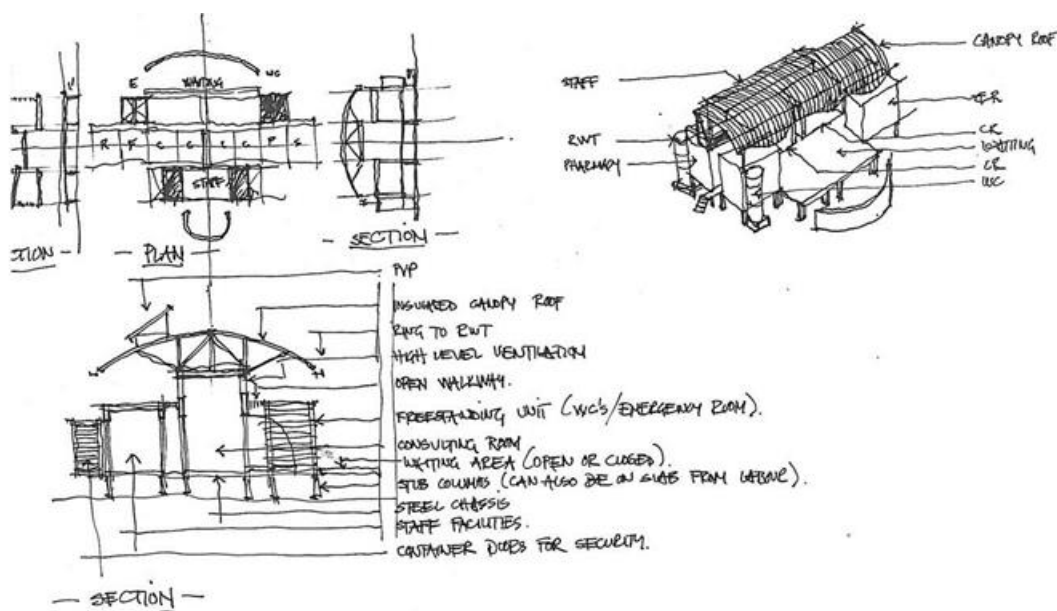 E
WAITING
WC
R P C C C C P S
STAFF
— PLAN —
— SECTION —
CTION —
CANOPY ROOF
STAFF
ER
RWT
CR
WAITING
PHARMACY
CR
WC
PVP
INSULATED CANOPY ROOF
RWG TO RWT
HIGH LEVEL VENTILATION
OPEN WALKWAY.
FREESTANDING UNIT (WC'S/EMERGENCY ROOM).
CONSULTING ROOM
WAITING AREA (OPEN OR CLOSED).
STUB COLUMNS (CAN ALSO BE ON SLAB FROM LABOUR).
STEEL CHASSIS
STAFF FACILITIES.
CONTAINER DOORS FOR SECURITY.
— SECTION —